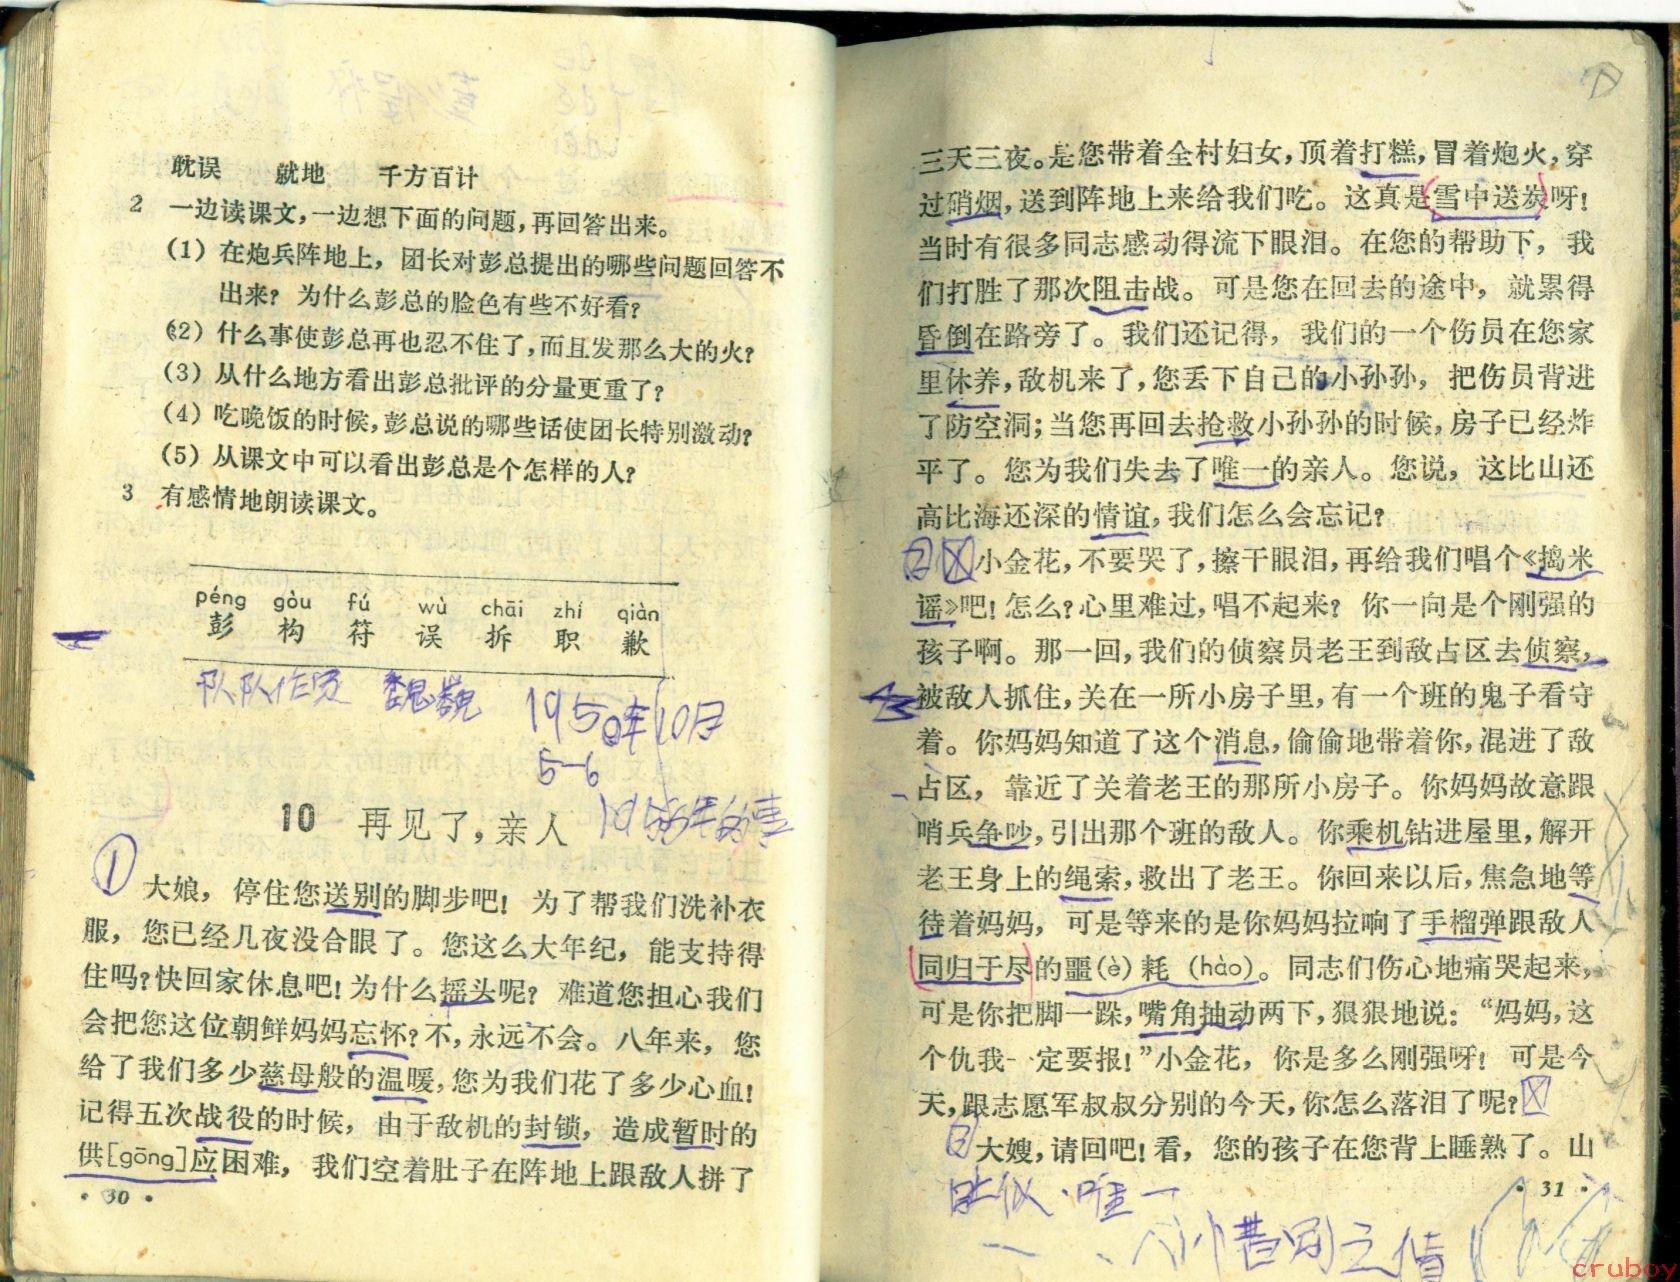 耽误　就地　千方百计
2 一边读课文，一边想下面的问题，再回答出来。
(1) 在炮兵阵地上，团长对彭总提出的哪些问题回答不
出来？为什么彭总的脸色有些不好看？
(2) 什么事使彭总再也忍不住了，而且发那么大的火？
(3) 从什么地方看出彭总批评的分量更重了？
(4) 吃晚饭的时候，彭总说的哪些话使团长特别激动？
(5) 从课文中可以看出彭总是个怎样的人？
3 有感情地朗读课文。
péng gòu fú wù chāi zhí qiàn
彭 构 符 误 拆 职 歉
魏巍 1950年10月
5-6
10 再见了，亲人
①
大娘，停住您送别的脚步吧！为了帮我们洗补衣
服，您已经几夜没合眼了。您这么大年纪，能支持得
住吗？快回家休息吧！为什么摇头呢？难道您担心我们
会把您这位朝鲜妈妈忘怀？不，永远不会。八年来，您
给了我们多少慈母般的温暖，您为我们花了多少心血！
记得五次战役的时候，由于敌机的封锁，造成暂时的
供[gōng]应困难，我们空着肚子在阵地上跟敌人拼了
· 30 ·
三天三夜。是您带着全村妇女，顶着打糕，冒着炮火，穿
过硝烟，送到阵地上来给我们吃。这真是雪中送炭呀！
当时有很多同志感动得流下眼泪。在您的帮助下，我
们打胜了那次阻击战。可是您在回去的途中，就累得
昏倒在路旁了。我们还记得，我们的一个伤员在您家
里休养，敌机来了，您丢下自己的小孙孙，把伤员背进
了防空洞；当您再回去抢救小孙孙的时候，房子已经炸
平了。您为我们失去了唯一的亲人。您说，这比山还
高比海还深的情谊，我们怎么会忘记？
小金花，不要哭了，擦干眼泪，再给我们唱个《捣米
谣》吧！怎么？心里难过，唱不起来？你一向是个刚强的
孩子啊。那一回，我们的侦察员老王到敌占区去侦察，
被敌人抓住，关在一所小房子里，有一个班的鬼子看守
着。你妈妈知道了这个消息，偷偷地带着你，混进了敌
占区，靠近了关着老王的那所小房子。你妈妈故意跟
哨兵争吵，引出那个班的敌人。你乘机钻进屋里，解开
老王身上的绳索，救出了老王。你回来以后，焦急地等
待着妈妈，可是等来的是你妈妈拉响了手榴弹跟敌人
同归于尽的噩(è)耗 (hào)。同志们伤心地痛哭起来，
可是你把脚一跺，嘴角抽动两下，狠狠地说：“妈妈，这
个仇我一定要报！”小金花，你是多么刚强呀！可是今
天，跟志愿军叔叔分别的今天，你怎么落泪了呢？
大嫂，请回吧！看，您的孩子在您背上睡熟了。山
唯一
· 31 ·
cruboy